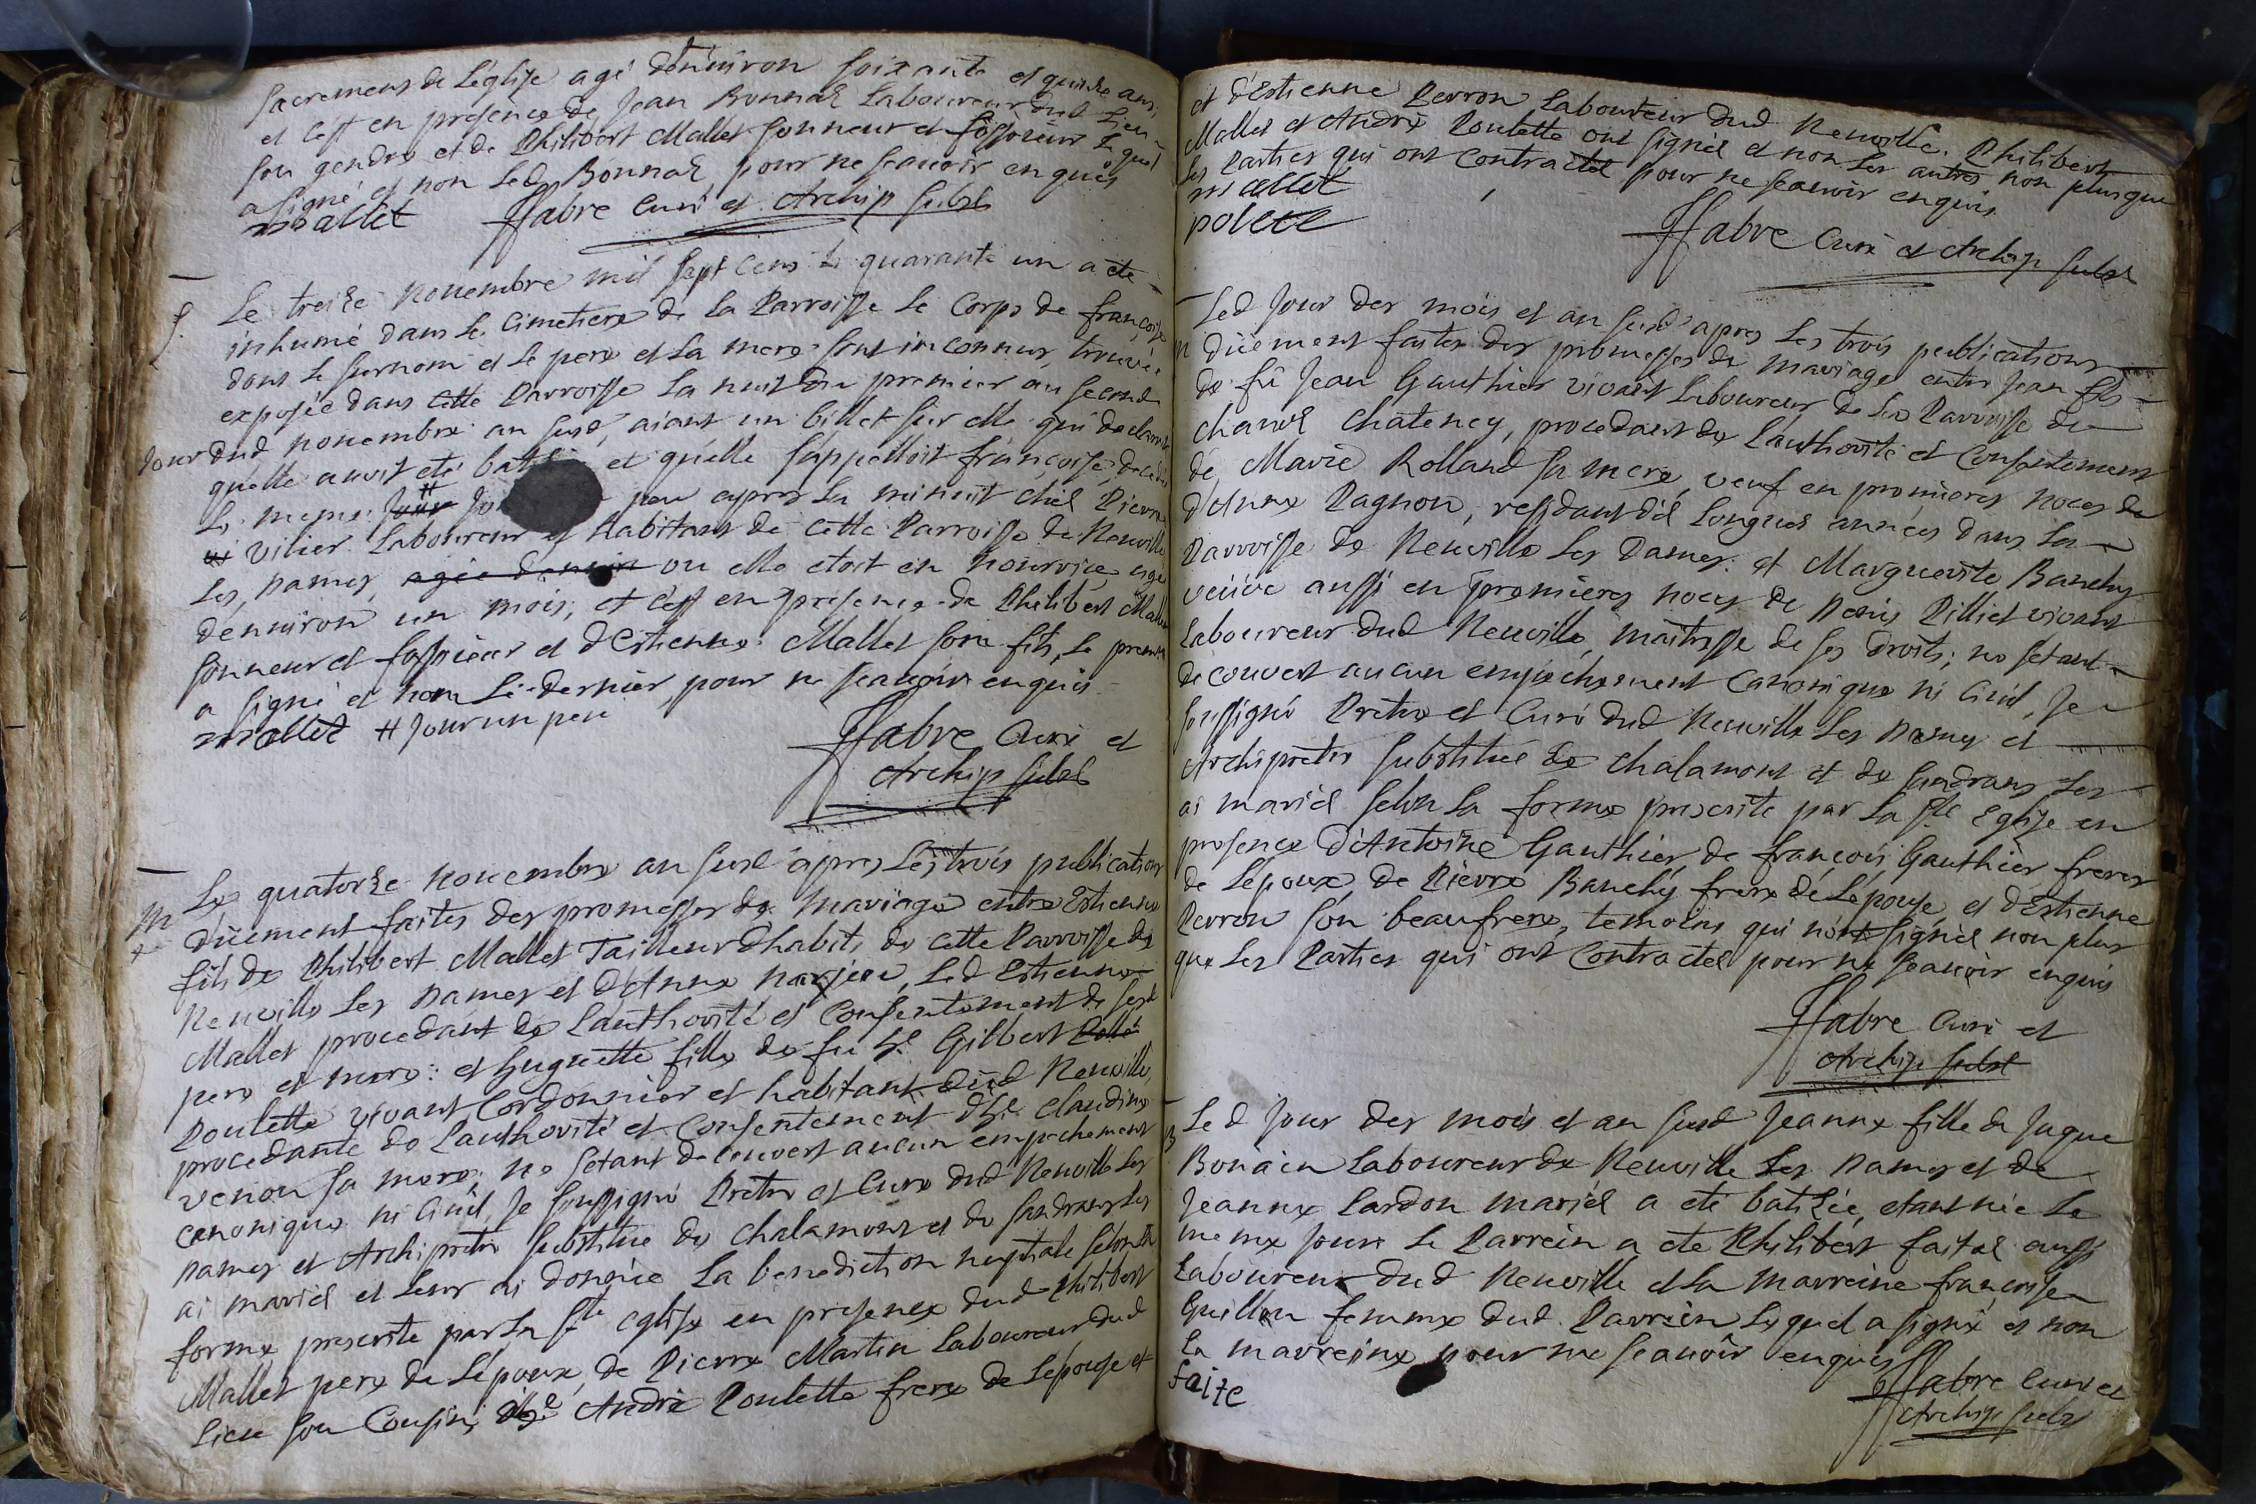 sacremens de L'église agé d'enuiron soixante et quinze ans,
et c'est en presence de Jean Bonnaz Laboureur dud Lieu
son gendre et de Philibert Mallet sonneur et fossoieur Lequel
a signé et non led Bonnaz pour ne sçauoir enquis
mallet Ffabre Curé et Archip subst
Le treize nouembre mil sept cens quarante un a été
S. inhumé dans Le Cimetiere de La Parroisse Le Corps de françoise
dont Le surnom et Le pere et La mere sont inconnus, trouvée
exposée dans cette Parroisse La nuit du premier au second
jour dud nouembre an susd, aiant un billet sur elle qui declaroit
quelle auoit eté et quelle s'appelloit françoise, decedée
Le meme peu apres La minuit chés Pierre
Vilier Laboureur et Habitant de cette Parroisse de Neuville
Les Dames, agée denuiron ou elle etoit en nourrice, agée
denuiron un mois, et c'est en presence de Philibert Mallet
sonneur et fossoieur et d'Estienne Mallet son fils, Le premier
a signé et non Le dernier, pour ne sçauoir enquis
mallet # Jour un peu
Ffabre Curé et
Archip subst
Le quatorze nouembre an susd apres Les trois publications
M düement faites des promesses de mariage entre Estienne
fils de Philibert Mallet Tailleur d'habits de cette Parroisse de
Neuville Les Dames et d'Anne Led Estienne
Mallet procedant de L'authorité et Consentement de sesd
pere et mere: et huguette fille de fu Gilbert
Poulette vivant Cordonnier et habitant dud Neuville,
procedante de L'authorité et Consentement Claudine
venou sa mere; ne s'etant decouvert aucun empechement
canonique ni Ciuil, Je soussigné Pretre et Curé dud Neuville Les
Dames et Archipretre substitué de Chalamont et de Sandrans Les
ai mariés et Leur ai donnée La benediction nuptiale selon La
forme prescrite par La Ste eglise en presence dud Philibert
Mallet pere de L'epoux, de Pierre Martin Laboureur dud
Lieu son Cousin, André Poulette frere de L'epouse et
et d'Estienne Perron Laboureur dud Neuville. Philibert
Mallet et André Poulette ont signés et non Les autres non plus que
Les Parties qui ont Contracté pour ne sçauoir enquis
mallet
polete
Ffabre Curé et Archip subst
Led Jour des mois et an susd apres Les trois publications
M düement faites des promesses de mariage entre Jean fils
de fû Jean Gauthier vivant Laboureur de La Parroisse de
Chanoz Chatenay, procedant de L'authorité et Consentement
de Marie Rolland sa mere, veuf en premieres noces de
d'Anne Pagnon, residant dés Longues années dans La
Parroisse de Neuville Les Dames. et Marguerite Banchy
veüve aussi en premieres noces de Denis Pilliet vivant
Laboureur dud Neuville, maitresse de ses droits; ne s'etant
decouvert aucun empechement Canonique ni Ciuil, Je
soussigné Pretre et Curé dud Neuville Les Dames et
Archipretre substitué de Chalamont et de Sandrans Les
ai mariés selon La forme prescrite par La Ste Eglise en
presence d'Antoine Gauthier, de françois Gauthier freres
de L'epoux, de Pierre Banchy frere de L'epouse, et d'Estienne
Perron son beaufrere, temoins qui n'ont signés non plus
que Les Parties qui ont Contractés pour ne sçauoir enquis
Ffabre Curé et
Archip subst
Led Jour des mois et an susd Jeanne fille de Jugue
B Bonain Laboureur de Neuville Les Dames et de
Jeanne Lardon mariés a eté batizée, etant née Le
meme jour. Le Parrein a eté Philibert faitat aussi
Laboureur dud Neuville et La marreine françoise
Guillon femme dud. Parrein Lequel a signé et non
La marreine pour ne sçauoir enquis
faite Ffabre Curé et
Archip subst